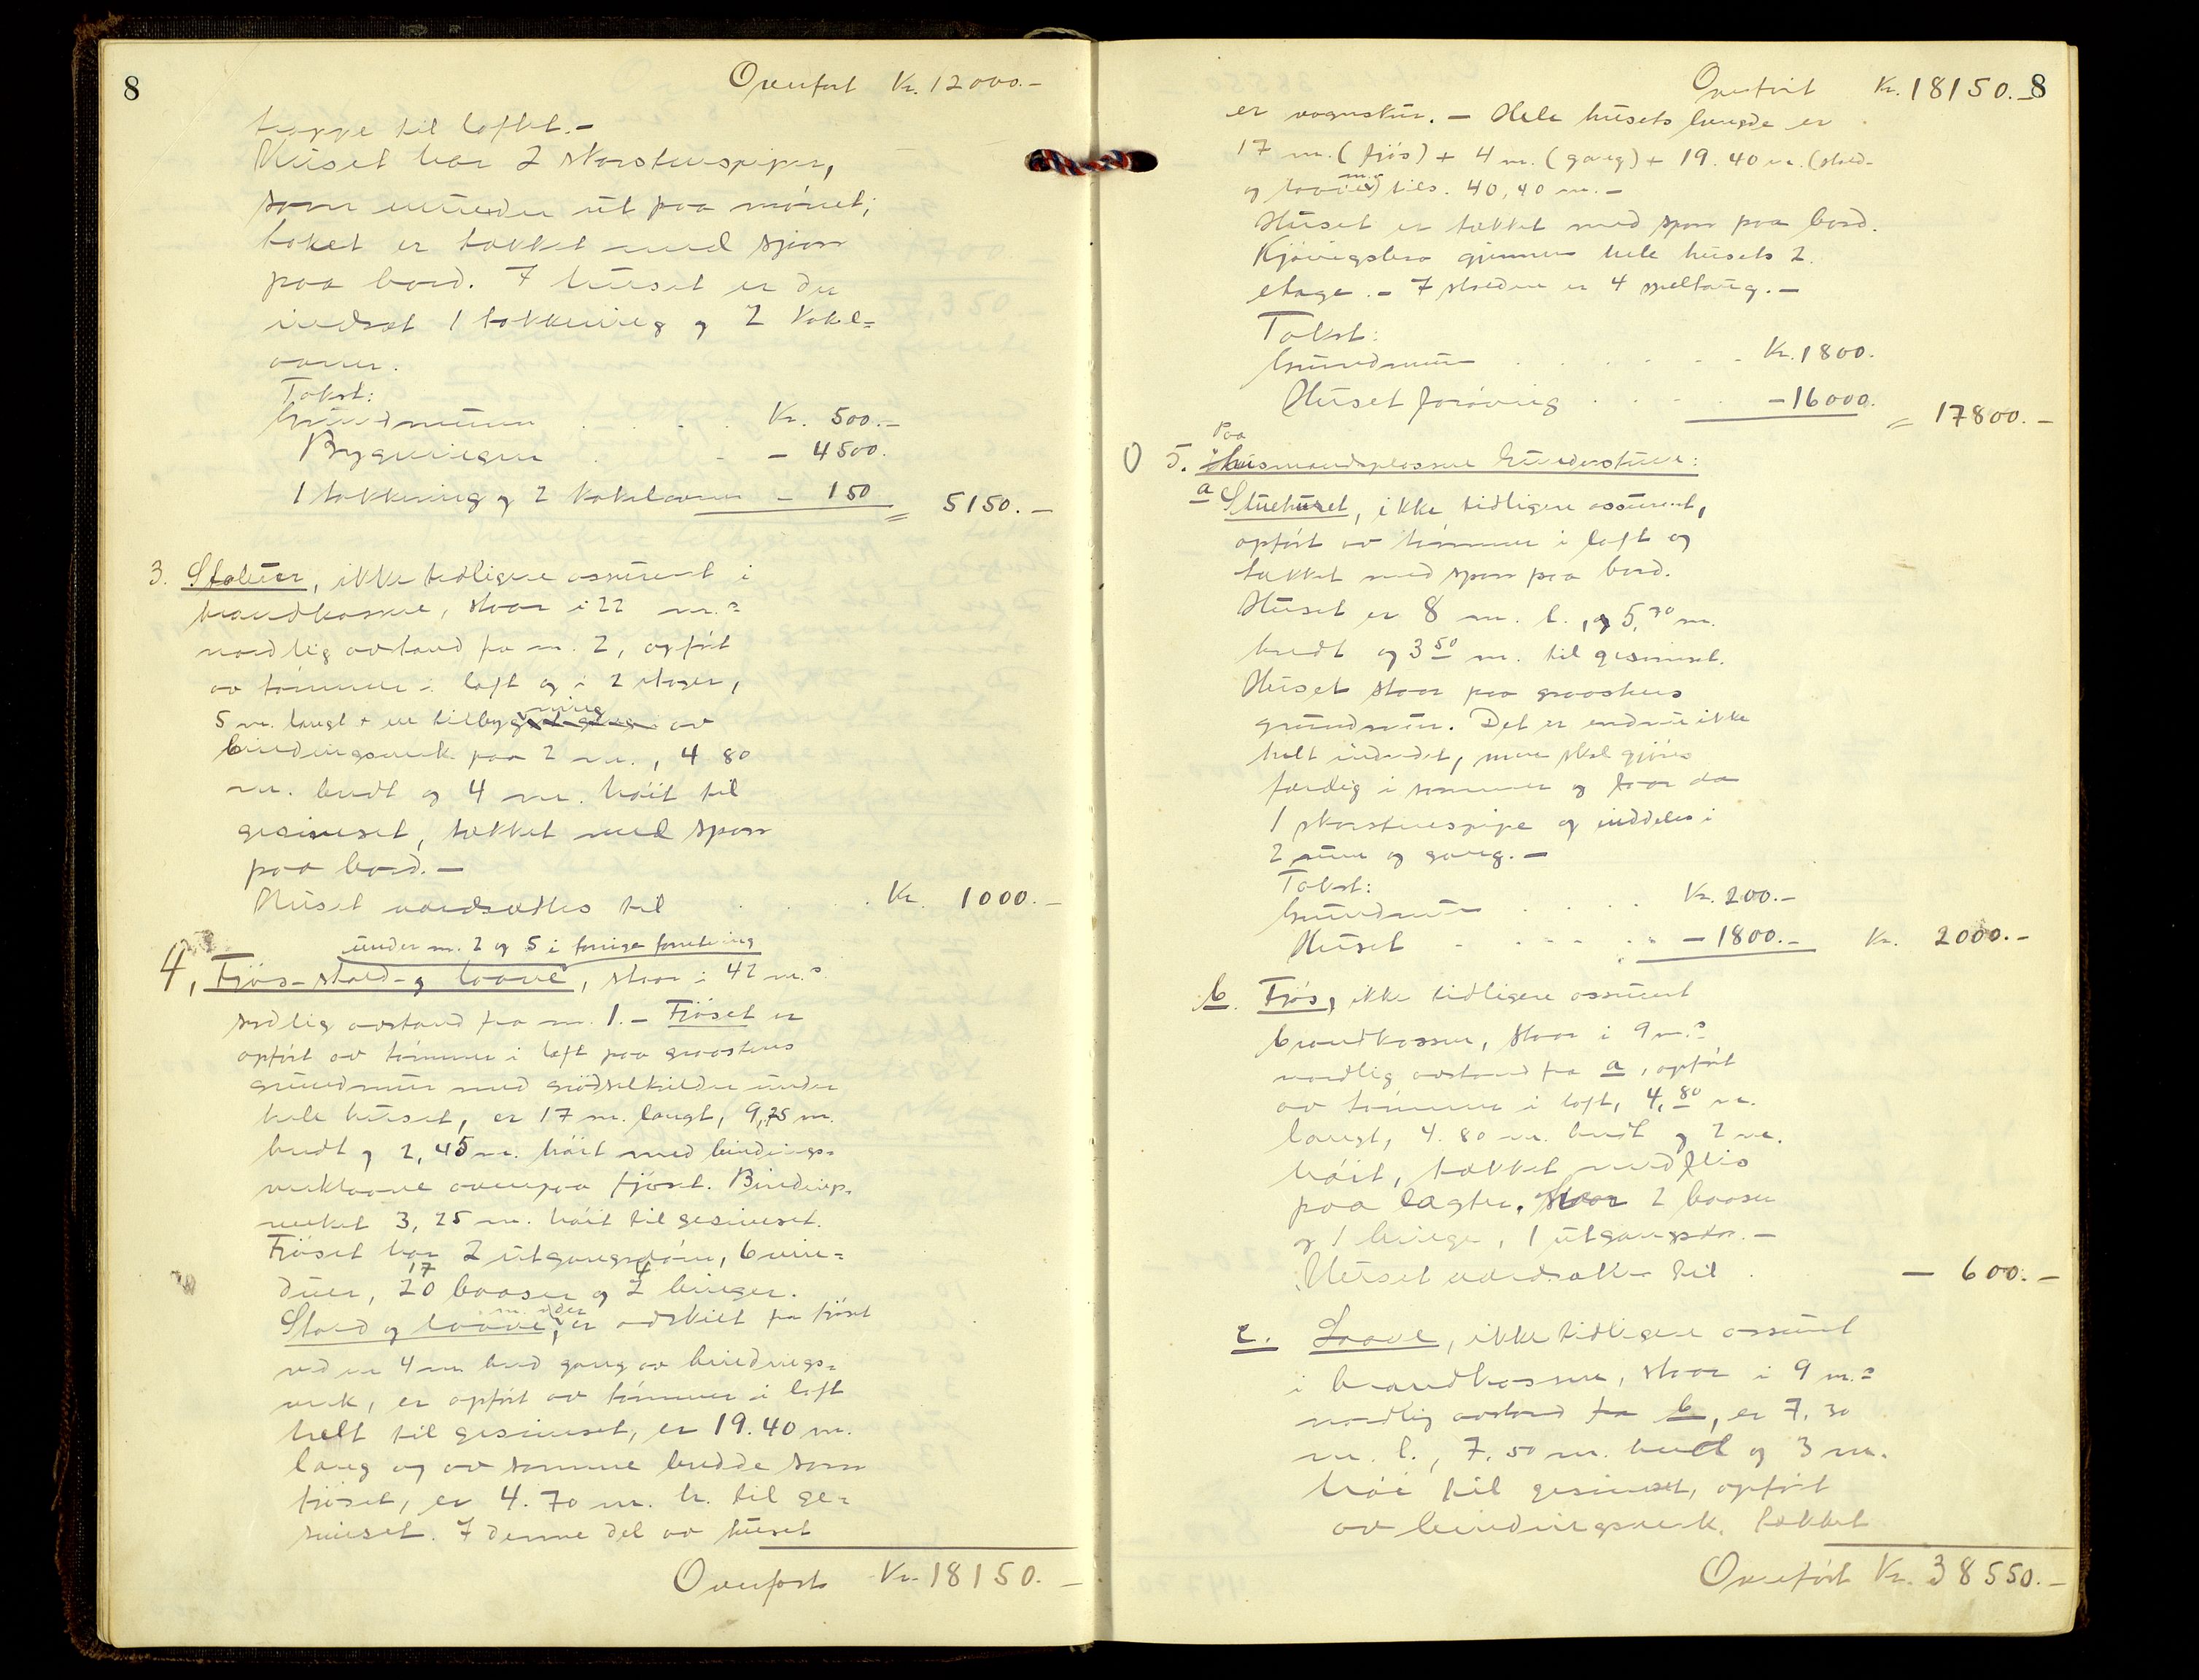 8
Overført Kr. 12000.-
trappe til loftet.-
Huset har 2 skorstenspiper,
som munder ut paa mønet;
taket er tækket med spon
paa bord. I huset er der
indsat 1 takkering og 2 kakel=
ovner.
Takst:
Grundmuren . . . . Kr. 500.-
Bygningen . - - 4500.
1 takkering og 2 kakelovner - 150 = 5150.-
3. Stabur, ikke tidligere assurert i
brandkassen, staar i 22 m.s
nordlig avstand fra nr. 2, opført
av tømmer i laft og i 2 etager,
5 m. langt + en tilbygning av
bindingsverk paa 2 m., 4 80
m. bredt og 4 m. høit til
gesimset, tækket med spon
paa bord.-
Huset værdsættes til . . . . Kr. 1000.-
under nr. 2 og 5 i forrige forretning
4, Fjøs- stald- og laave, staar i 42 m.s
sydlig avstand fra nr. 1.- Fjøset er
opført av tømmer i laft paa graastens
grundmur med gjødselkjelder under
hele huset, er 17 m. langt, 9,75 m.
bredt og 2,45 m. høit med bindings-
verklaave ovenpaa fjøset. Bindings-
verket 3,25 m. høit til gesimset.
Fjøset har 2 utgangsdøre, 6 vin=
duer, 17 baaser og 4 binger.
Stald og laave, er adskilt fra fjøset
ved en 4 m bred gang av bindings=
verk, er opført av tømmer i laft
helt til gesimset, er 19.40 m.
lang og av samme bredde som
fjøset, er 4.70 m. h. til ge=
simset. I denne del av huset
Overført Kr. 18150.-
8
Overført Kr. 18150.-
er vognskur.- Hele husets længde er
17 m. (fjøs) + 4 m. (gang) + 19.40 m. (stald-
og laave) tils. 40,40 m.-
Huset er tækket med spon paa bord.
Kjøringsbro gjennem hele husets 2.
etage.- I stalden er 4 spiltaug.-
Takst:
Grundmur . . . . - - Kr. 1800.
Huset forøvrig . . . . -16000. = 17800.-
Paa
5. Husmandsplassen :
a Stuehuset, ikke tidligere assurert,
opført av tømmer i laft og
tækket med spon paa bord.
Huset er 8 m. l., og 5,30 m.
bredt og 3 50 m. til gesimset.
Huset staar paa graastens
grundmur. Det er endnu ikke
helt indredet, men skal gjøres
færdig i sommer og faar da
1 skorstenspipe og inddeles i
2 rum og gang.-
Takst:
Grundmur . . . . Kr. 200.-
Huset - . - - . - 1800.- Kr. 2000.-
b. Fjøs, ikke tidligere assurert
brandkassen, staar i 9 m.s
nordlig avstand fra a, opført
av tømmer i laft, 4,80 m.
langt, 4.80 m. bredt og 2 m.
høit, tækket med flis
paa lægter. 2 baaser
og 1 binge, 1 utgangsdør.-
Huset værdsættes til . - 600.-
c. Laave, ikke tidligere assurert
i brandkassen, staar i 9 m.s
nordlig avstand fra b, er 7,30
m. l., 7.50 m. bredt og 3 m.
høi til gesimset, opført
av bindingsverk, tækket
Overført Kr. 38550.-